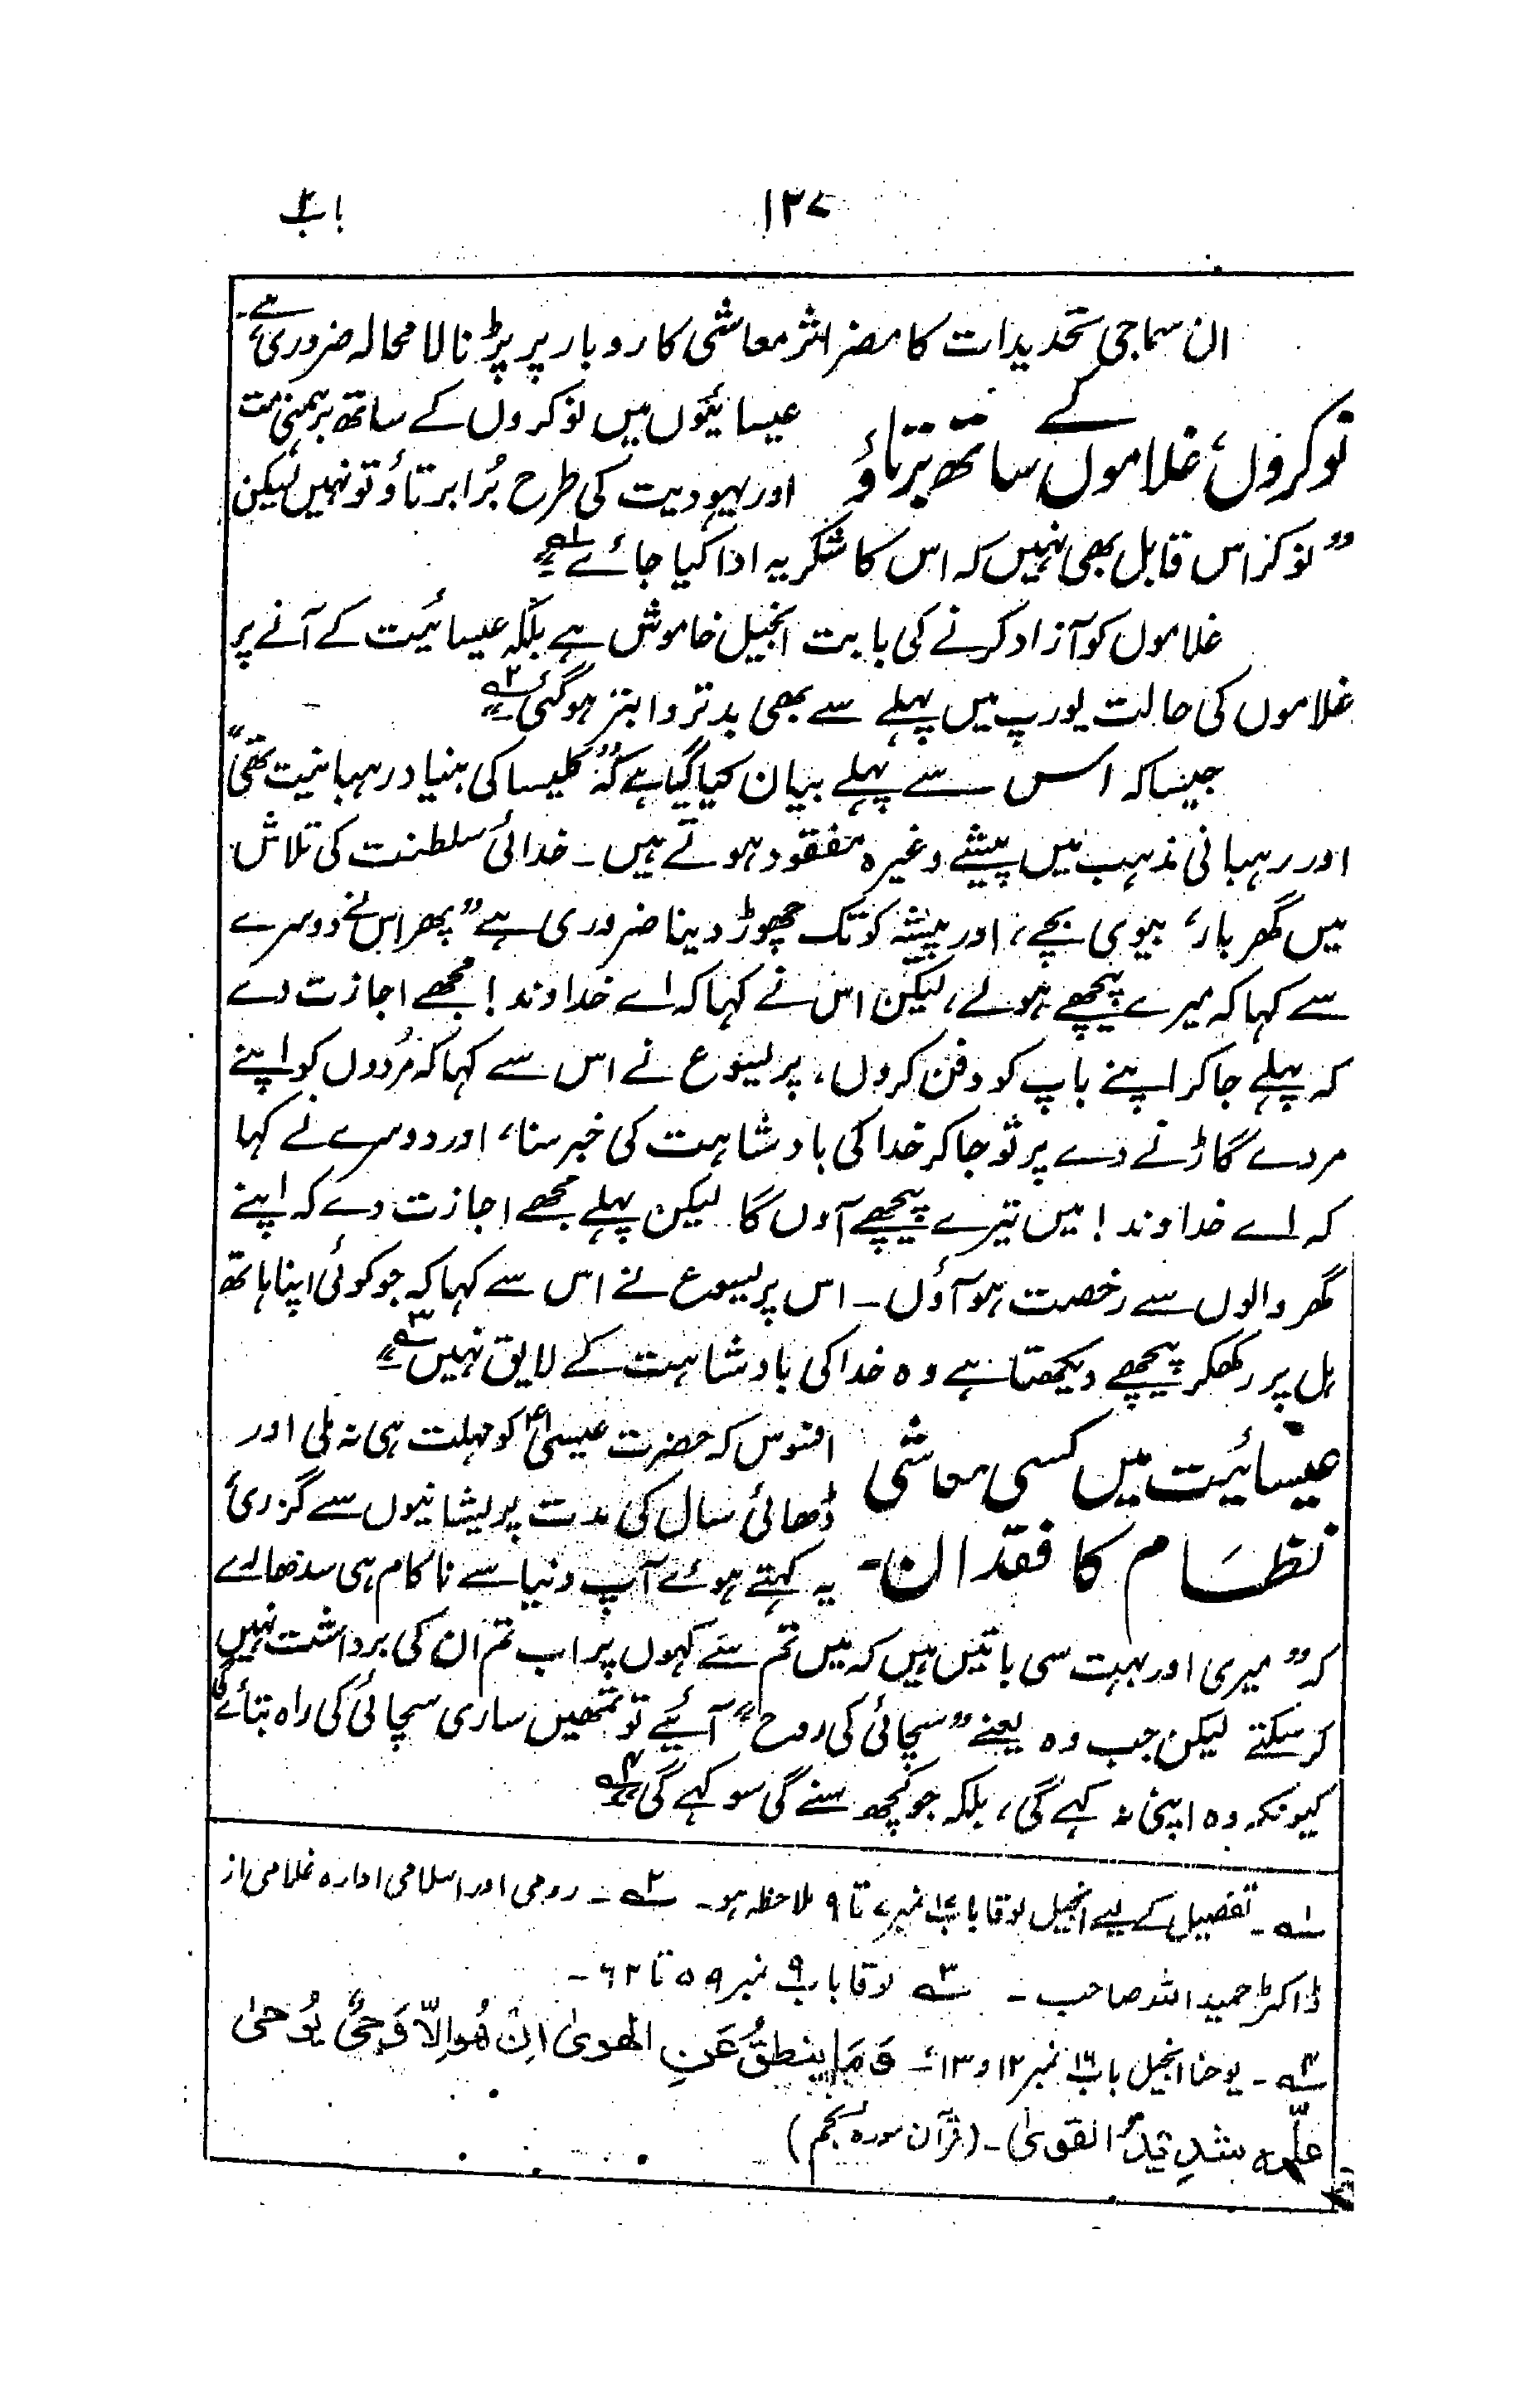 ۱۳۷ باب۲
ان سماجی تحدیدات کا مضر اثر معاشی کاروبار پر پڑنا لا محالہ ضروری ہے۔
نوکروں، غلاموں کے ساتھ برتاؤ
عیسائیوں میں نوکروں کے ساتھ برہمنی مت
اور یہودیت کی طرح بُرا برتاؤ تو نہیں لیکن
”نوکر اس قابل بھی نہیں کہ اس کا شکریہ ادا کیا جائے“ ؎۱
غلاموں کو آزاد کرنے کی بابت انجیل خاموش ہے بلکہ عیسائیت کے آنے پر
غلاموں کی حالت یورپ میں پہلے سے بھی بدتر و ابتر ہوگئی ؎۲
جیسا کہ اس سے پہلے بیان کیا گیا ہے کہ ”کلیسا کی بنیاد رہبانیت تھی“
اور رہبانی مذہب میں پیشے وغیرہ مفقود ہوتے ہیں۔ خدائی سلطنت کی تلاش
میں گھر بار، بیوی بچے، اور پیشہ کو تک چھوڑ دینا ضروری ہے ”پھر اس نے دوسرے
سے کہا کہ میرے پیچھے ہولے، لیکن اس نے کہا کہ اے خداوند! مجھے اجازت دے
کہ پہلے جا کر اپنے باپ کو دفن کروں، پر یسوع نے اس سے کہا کہ مُردوں کو اپنے
مردے گاڑنے دے پر تو جا کر خدا کی بادشاہت کی خبر سنا، اور دوسرے نے کہا
کہ اے خداوند! میں تیرے پیچھے آوں گا لیکن پہلے مجھے اجازت دے کہ اپنے
گھر والوں سے رخصت ہو آؤں۔ اس پر یسوع نے اس سے کہا کہ جو کوئی اپنا ہاتھ
ہل پر رکھکر پیچھے دیکھتا ہے وہ خدا کی بادشاہت کے لایق نہیں“ ؎۳
عیسائیت میں کسی معاشی
نظام کا فقدان۔
افسوس کہ حضرت عیسیٰؑ کو مہلت ہی نہ ملی اور
ڈھائی سال کی مدت پریشانیوں سے گزری،
یہ کہتے ہوئے آپ دنیا سے ناکام ہی سدھارے
کہ ”میری اور بہت سی باتیں ہیں کہ میں تم سے کہوں پر اب تم ان کی برداشت نہیں
کرسکتے لیکن جب وہ یعنے ”سچائی کی روح“ آئیے تو تمھیں ساری سچائی کی راہ بتائے گی
کیونکہ وہ اپنی نہ کہے گی، بلکہ جو کچھ سنے گی سو کہے گی“ ؎۴
؎۱۔ تفصیل کے لیے انجیل لوقا باب نمبر ۷ تا ۹ ملاحظہ ہو۔ ؎۲۔ رومی اور اسلامی ادارہ غلامی از
ڈاکٹر حمید اللہ صاحب۔ ؎۳ لوقا باب ۹ نمبر ۵۹ تا ۶۲۔
؎۴۔ یوحنا انجیل باب ۱۶ نمبر ۱۲ و ۱۳۔ وَمَا ینطقُ عَنِ الھویٰ اِنْ ھُوَ اِلّا وَحیٌ یُوحیٰ
علّمہ شدِیدُ القویٰ۔ (قرآن سورہ نجم)